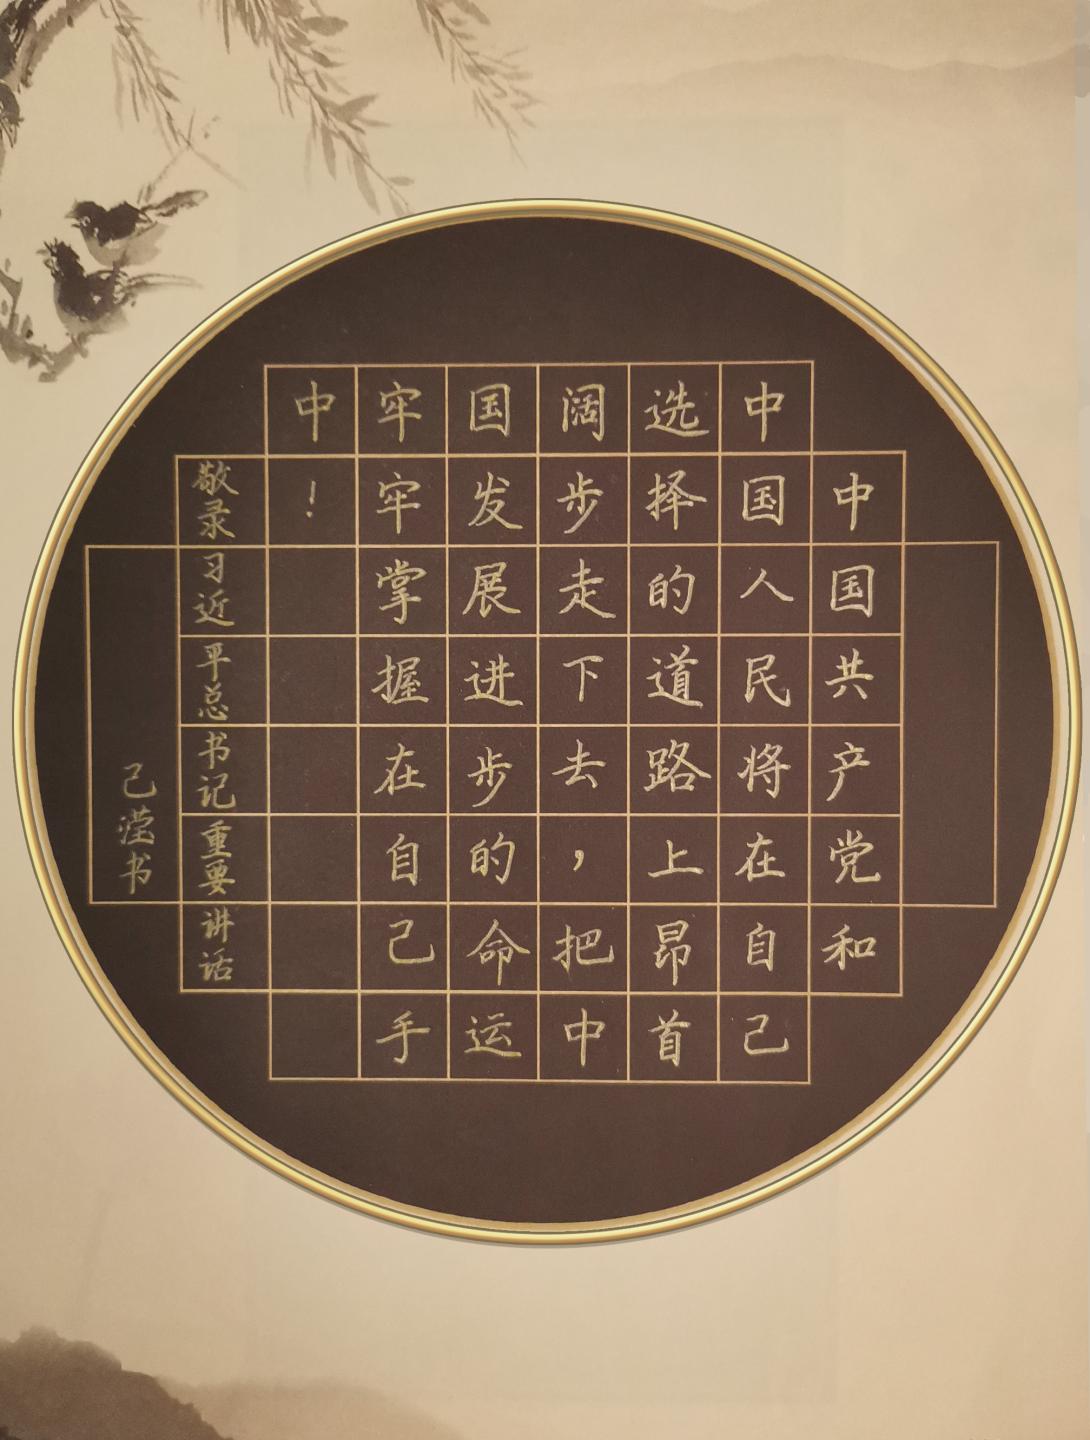 中国共产党和
中国人民将在自己
选择的道路上昂首
阔步走下去，把中
国发展进步的命运
牢牢掌握在自己手
中！
敬录习近平总书记重要讲话
己滢书